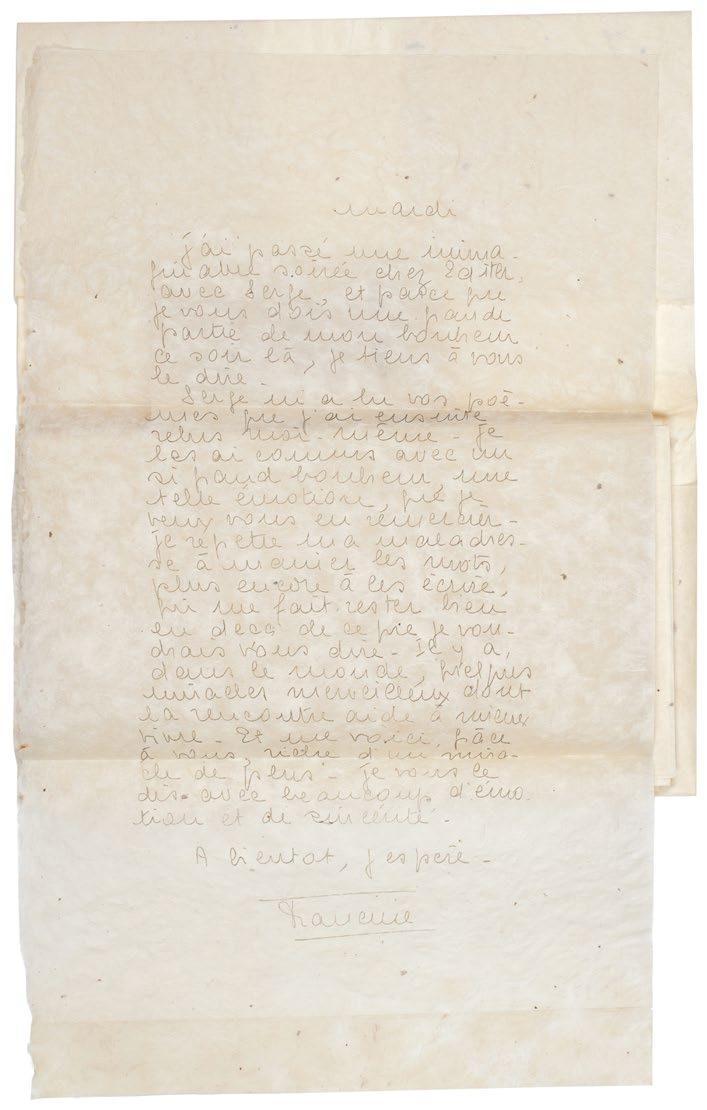 mardi
j'ai passé une inima-
ginable soirée chez Editer,
avec Serge, et parce que
je vous dois une grande
partie de mon bonheur
ce soir là, je tiens à vous
le dire.
Serge m'a lu vos poè-
mes que j'ai ensuite
relus moi-même - Je
les ai connus avec un
si grand bonheur, une
telle émotion, que je
veux vous en remercier -
je repette ma maladres-
se à manier les mots,
plus encore à les écrire,
qui me fait rester bien
en deça de ce que je vou-
drais vous dire - Il y a,
dans le monde, quelques
miracles merveilleux dont
la rencontre aide à mieux
vivre - Et me voici, grâce
à vous, riche d'un mira-
cle de plus - je vous le
dis avec beaucoup d'émo-
tion et de sincérité -
A bientot, j'espère -
Francine